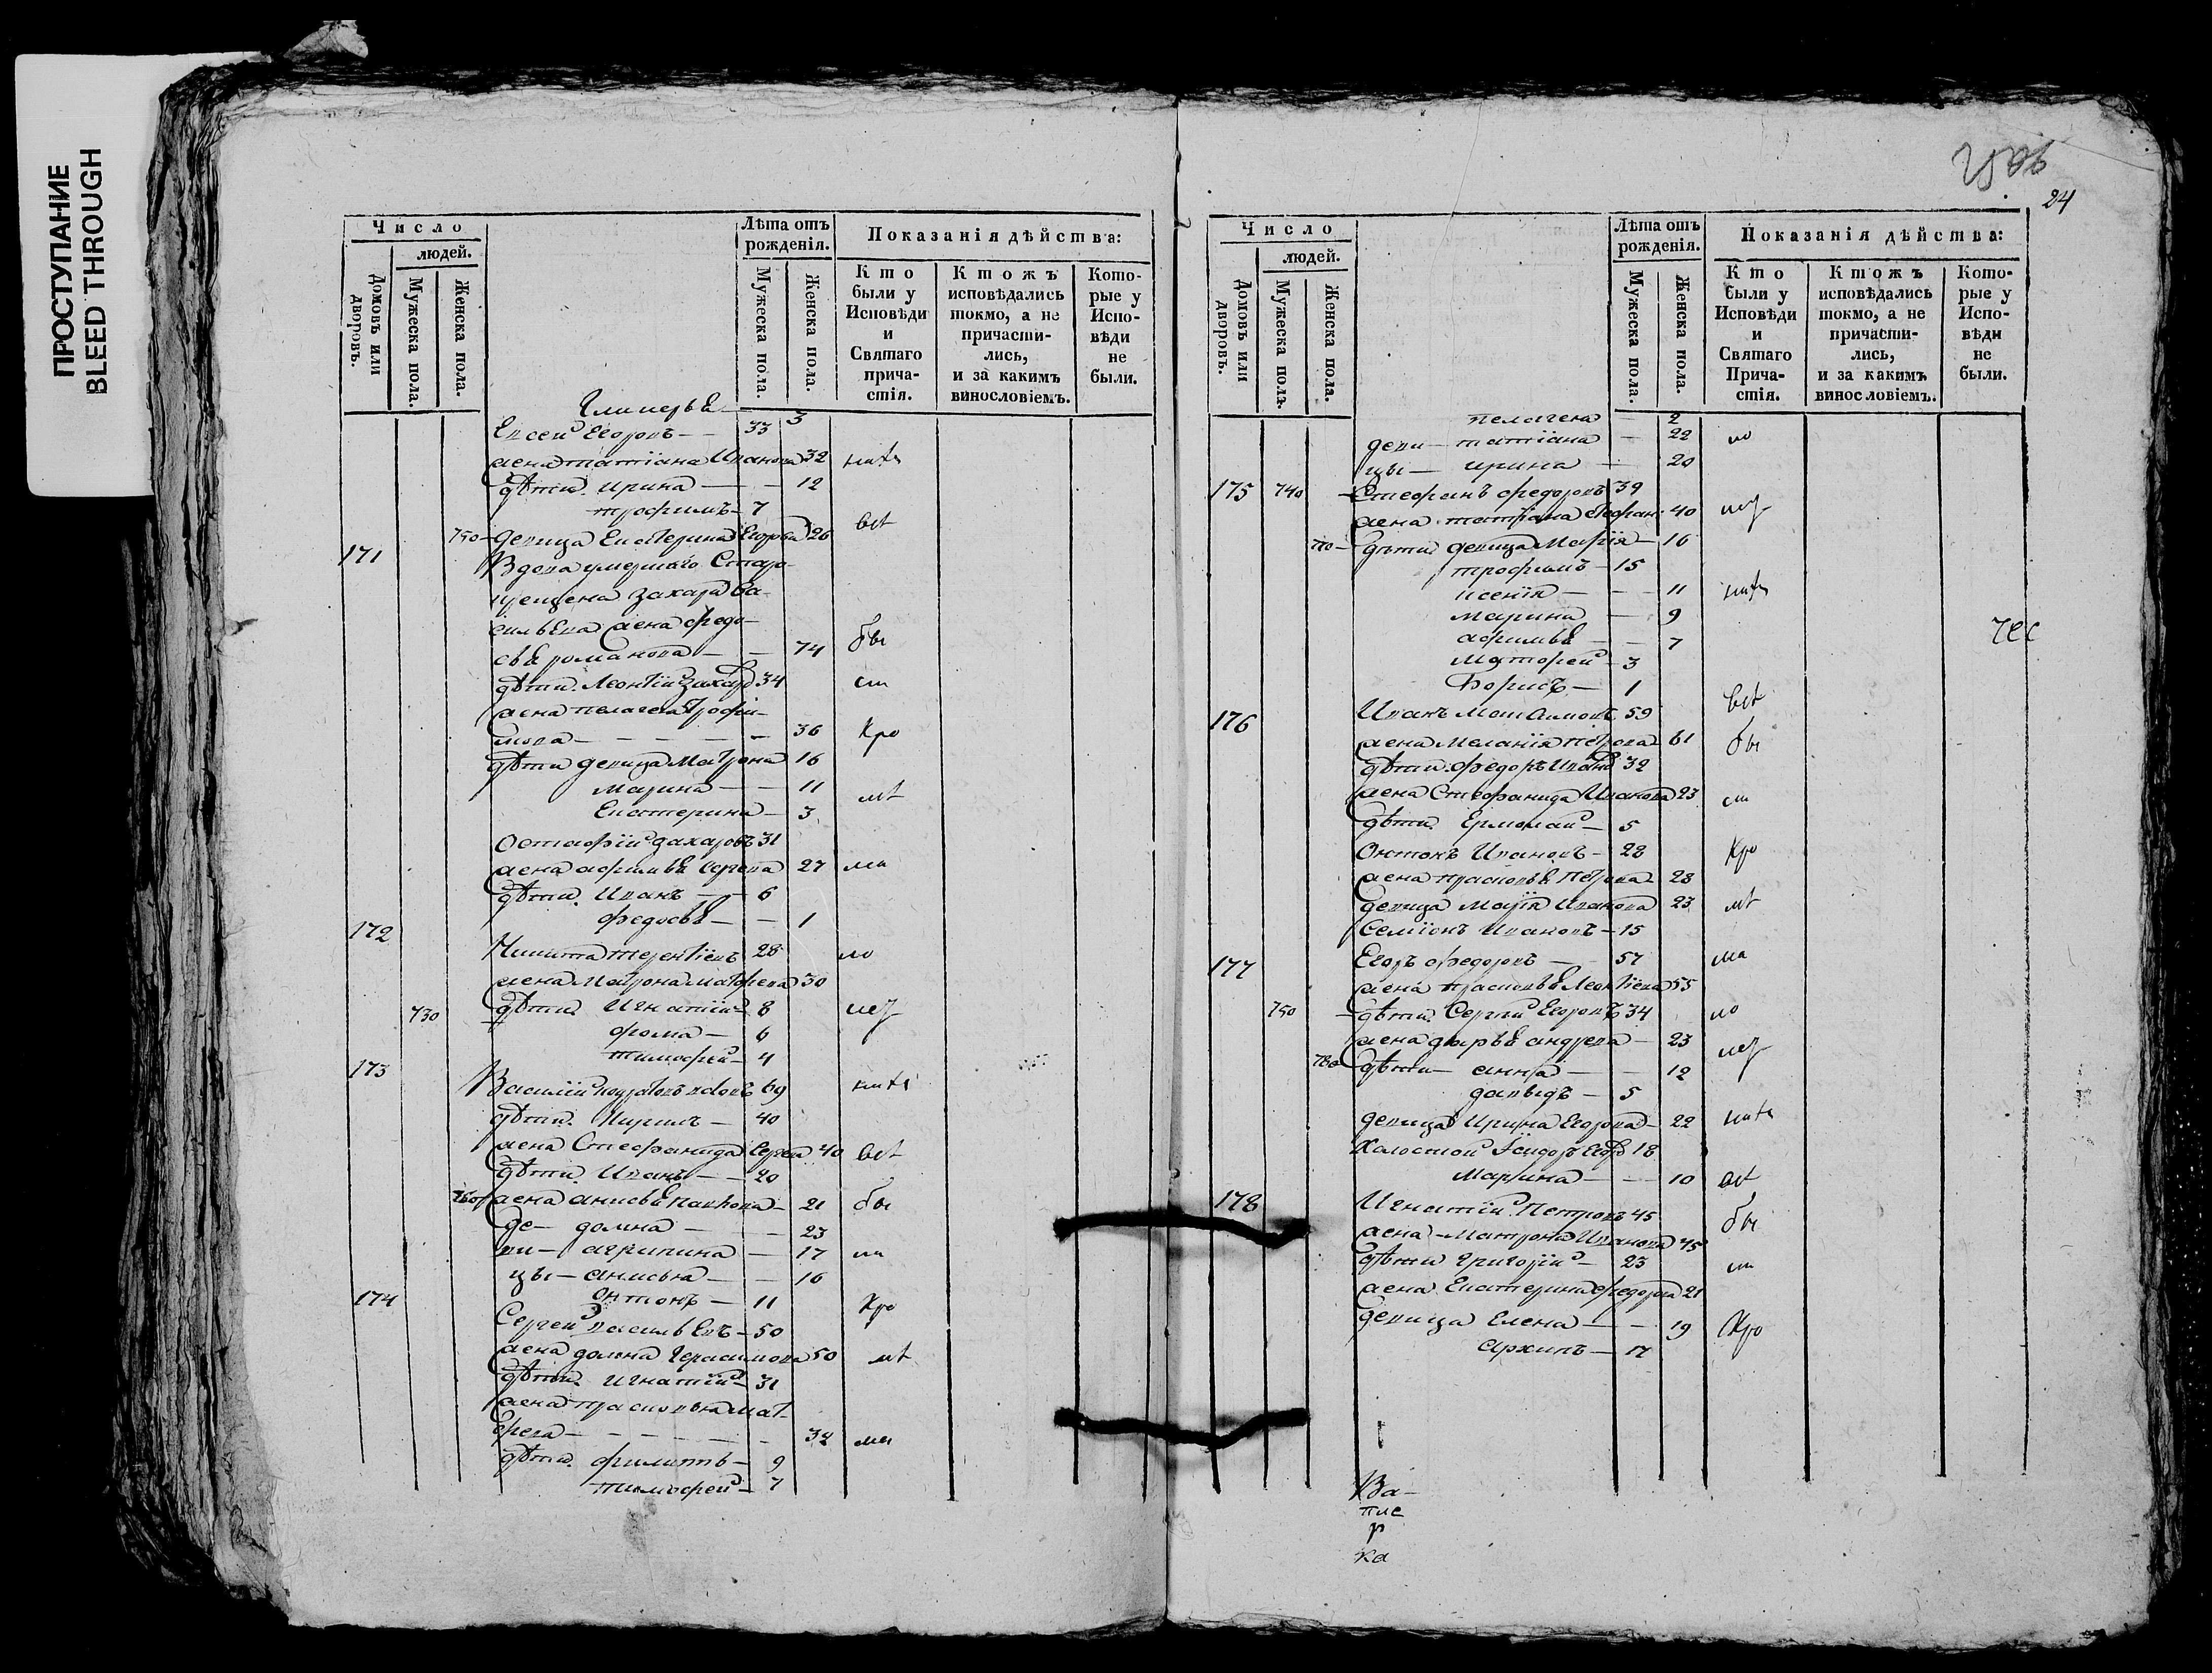 ПРОСТУПАНИЕ
BLEED THROUGH
Число
людей.
Домовъ или дворовъ.
Мужеска пола.
Женска пола.
Лѣта отъ рожденія.
Мужеска пола.
Женска пола.
Показанія дѣйства:
Кто были у Исповѣди и Святаго причастія.
Ктожъ исповѣдались токмо, а не причастились, и за какимъ винословіемъ.
Которые у Исповѣди не были.
Гликерья — 3
Евсей Егоровъ — 33
жена татіана Иванова 32
дѣти ирина — 12
трофимъ — 7
750 девица Екатерина Егорова 26 всѣ
171 Вдова умершаго Старо-
захара Ва-
сильева жена федо-
сья романова — 74 бы
дѣти Леонтій Захаро 34
жена пелагея трофи-
мова — 36 Кро
дѣти девица Матрона 16
Марина — 11 мѣ
Екатерина — 3
Остафій захаровъ 31
жена афимья Сергева 27 ма
дѣти Иванъ — 6
федосья — 1
172 Никита терентіевъ 28 ло
жена Матрона матфеева 30
730 дѣти Игнатій — 8
фома — 6
тимофей — 4
173 Василій 69
дѣти Кирилъ — 40
жена Стефанида Сергеева 40 всѣ
дѣти Иванъ — 20
760 жена анисья 21 бы
де- домна — 23
ви- агрипина — 17
цы- анисья — 16
антонъ — 11 Кро
174 Сергей васильевъ — 50
жена домна Герасимова 50 мѣ
дѣти игнатій — 31
жена прасковья мат-
феева — 32 ма
дѣти филиппъ — 9
тимофей — 7
24
Число
людей.
Домовъ или дворовъ.
Мужеска пола.
Женска пола.
Лѣта отъ рожденія.
Мужеска пола.
Женска пола.
Показанія дѣйства:
Кто были у Исповѣди и Святаго Причастія.
Ктожъ исповѣдались токмо, а не причастились, и за какимъ винословіемъ.
Которые у Исповѣди не были.
пелагея — 2
деви- татіана — 22 ло
цы- ирина — 20
175 740 Стефанъ федоровъ 39
жена татіана 40
770 дѣти девица Марія — 16
трофимъ — 15
ксенія — 11
марина — 9
афимья — 7
Матфей — 3
Борисъ — 1 всѣ
176 Иванъ 59
жена Меланія петрова 61 бы
дѣти федоръ Ивано 32
жена Стефанида Иванова 23
дѣти Ермолай — 5
Онтонъ Ивановъ — 28 Кро
жена прасковья Петрова 28
девица Марія Иванова 23 мѣ
Семіонъ Ивановъ — 15
177 Егоръ федоровъ — 57 ма
жена прасковья Леонтіева 55
750 дѣти Сергій Егоровъ 34 ло
жена дарья андреева — 23
780 дѣти анна — 12
давыдъ — 5
девица Ирина Егорова — 22
Холостой Ісидоръ Егоро 18
Марина — 10 всѣ
178 Игнатій Петровъ 45 бы
жена Матрона Иванова 45
дѣти григорій — 23
жена Екатерина федорова 21
девица Елена — 19 Кро
архипъ — 17
Ва-
ка